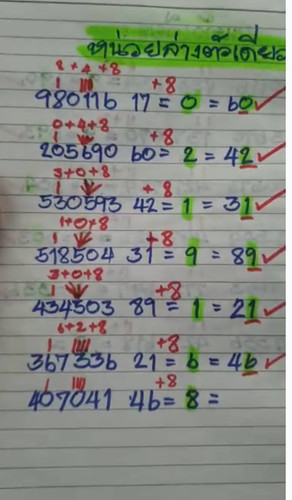 หน่วยล่างตัวเดียว
8+4+8
1 +8
980116 17 = 0 = 60
0+4+8
1 +8
205690 60 = 2 = 42
3+0+8
1 +8
530593 42 = 1 = 31
1+0+8
1 +8
518504 31 = 9 = 89
3+0+8
1 +8
434503 89 = 1 = 21
6+2+8
1 +8
367336 21 = 6 = 46
1 +8
407041 46 = 8 =